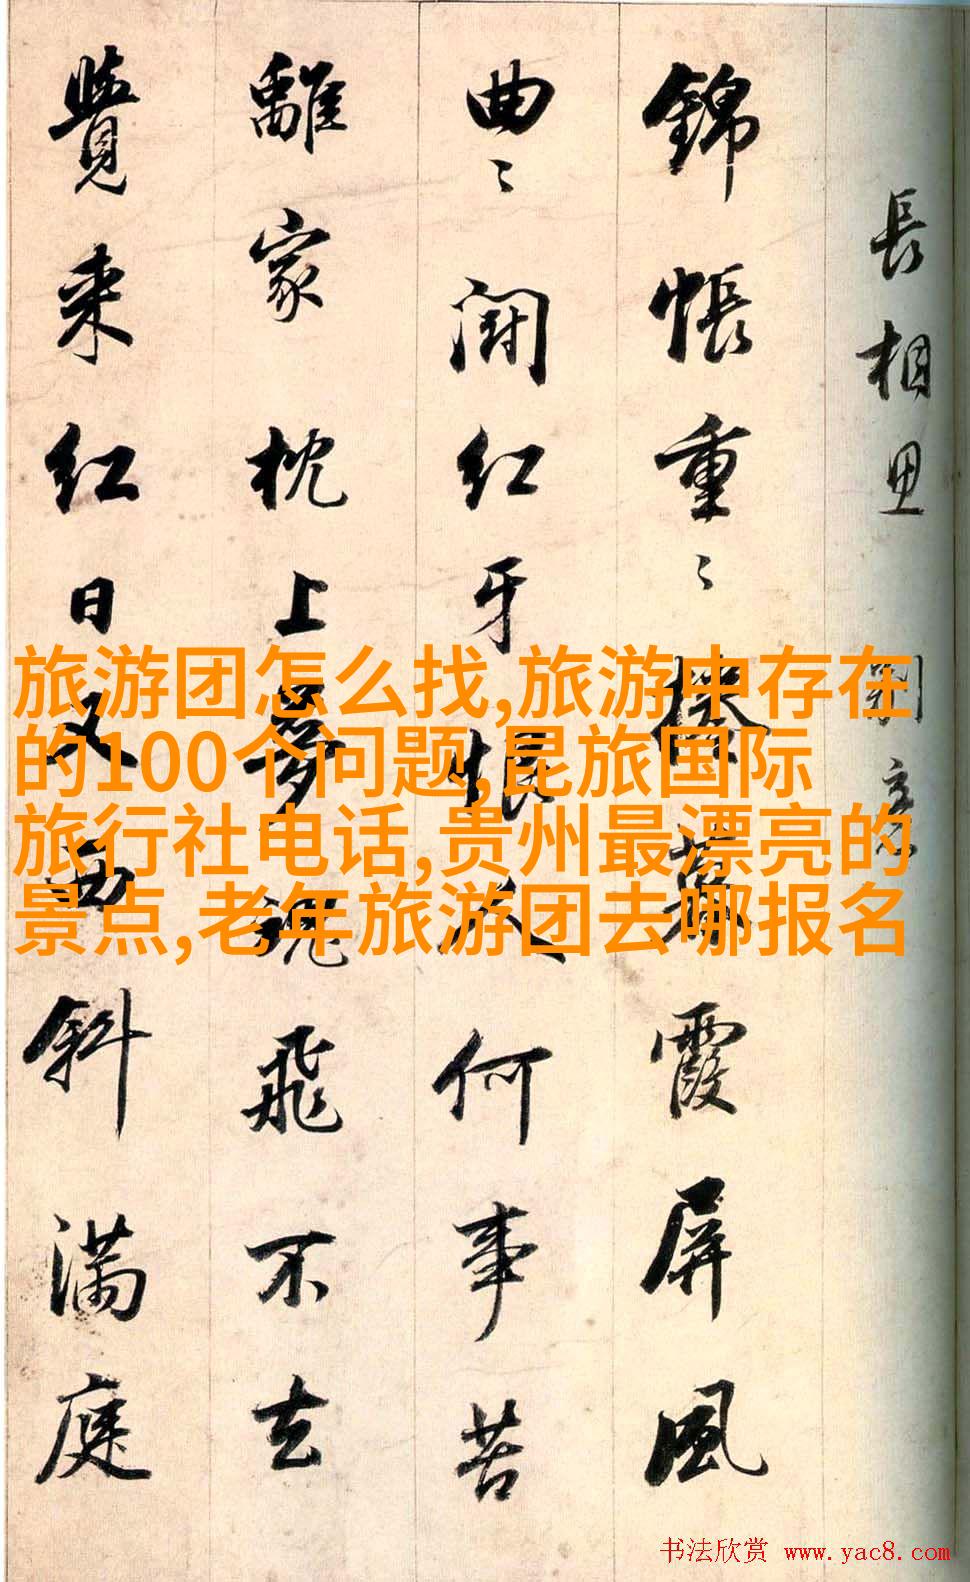 長相思 別意
錦帳重〻捲暮霞屏風
曲〻鬪紅牙恨人何事苦
離家枕上夢魂飛不去
覺来紅日又西斜滿庭
旅游团怎么找,旅游中存在
的100个问题,昆旅国际
旅行社电话,贵州最漂亮的
景点,老年旅游团去哪报名
书法欣赏 www.yac8.com